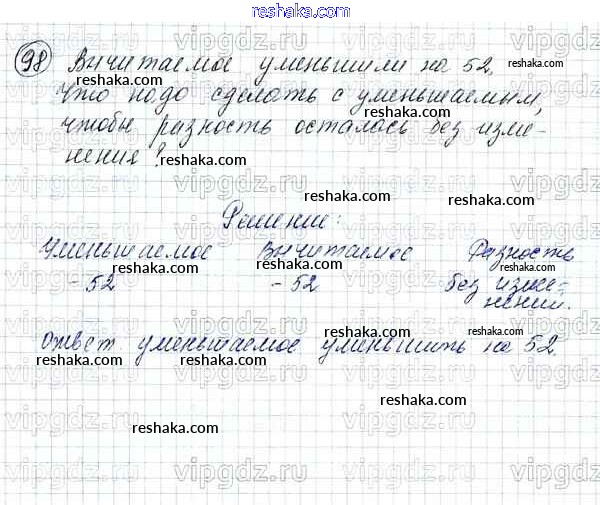 reshaka.com
98 Вычитаемое уменьшили на 52.
Что надо сделать с уменьшаемым,
чтобы разность осталась без изме-
нения?
Решение:
Уменьшаемое Вычитаемое Разность
- 52 - 52 без изме-
нений.
Ответ уменьшаемое уменьшить на 52